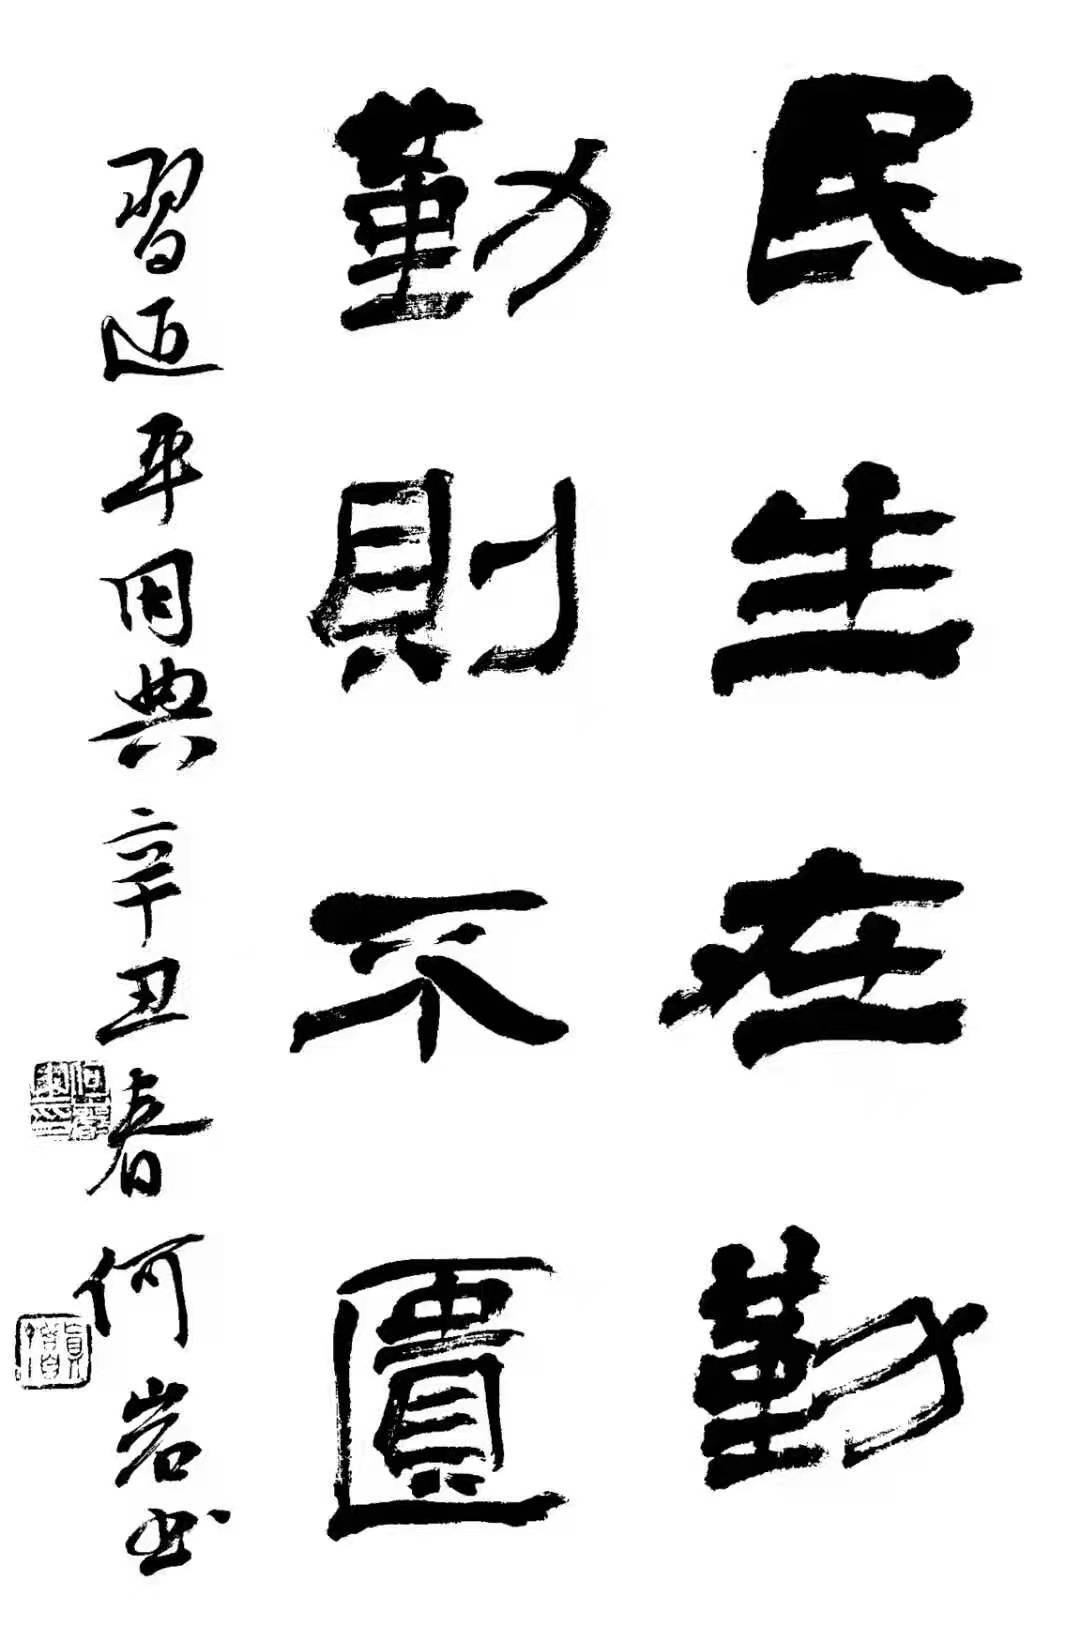 民生在勤
勤則不匱
習近平用典辛丑春何岩书